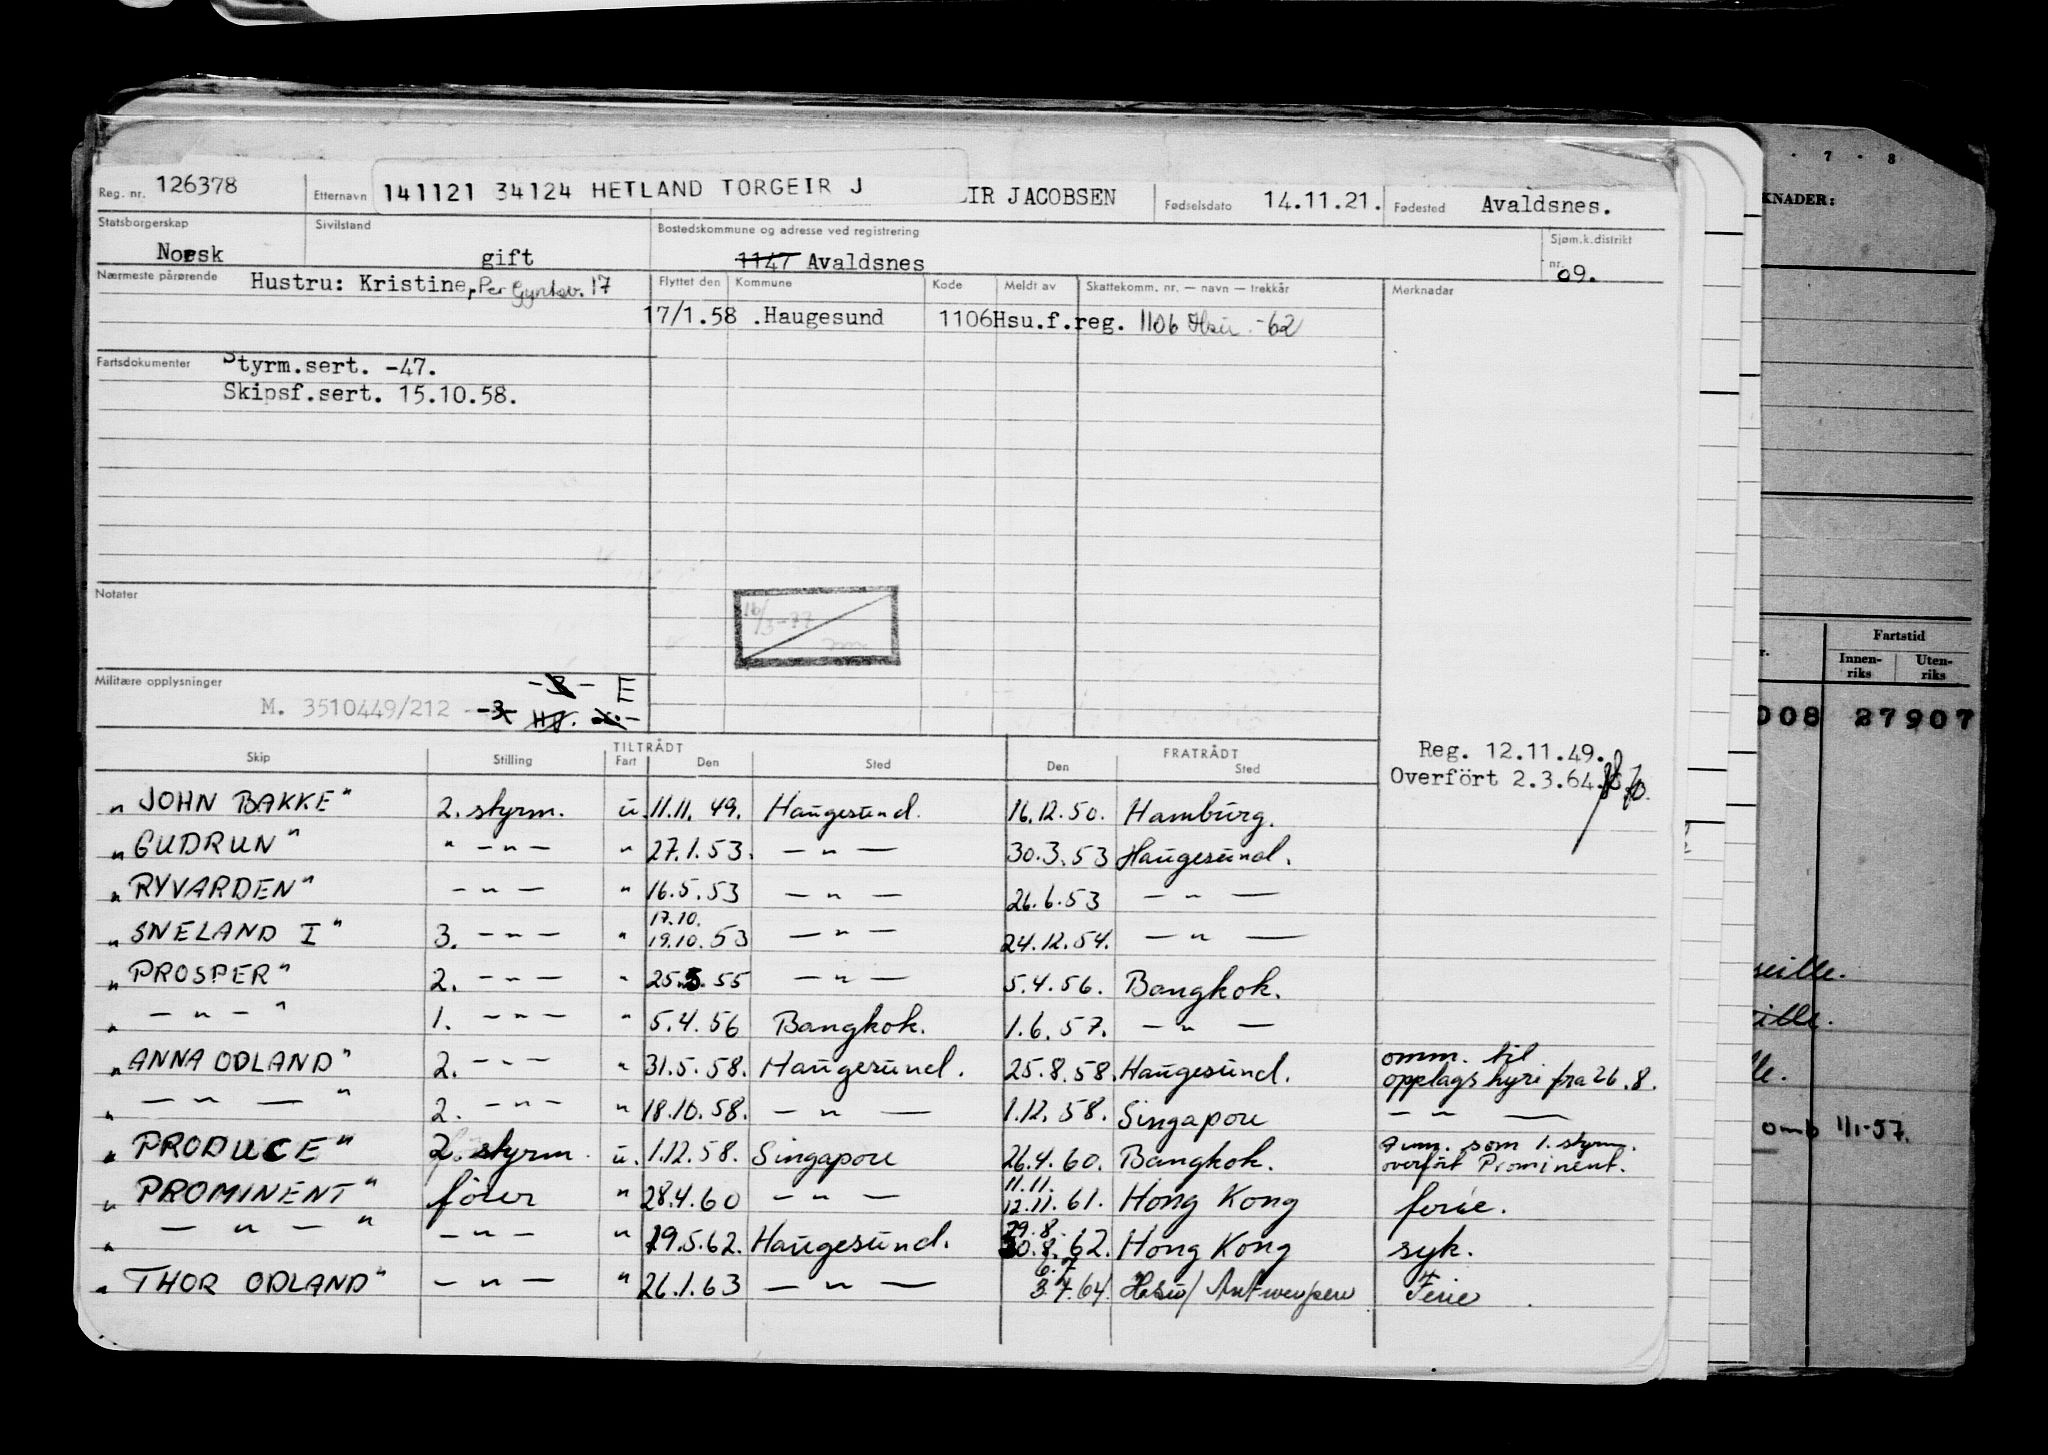 Reg. nr. 126378 Etternavn 141121 34124 HETLAND TORGEIR J IR JACOBSEN Fødselsdato 14.11.21. Fødested Avaldsnes.
Statsborgerskap Norsk Sivilstand gift Bostedskommune og adresse ved registrering 1147 Avaldsnes Sjøm.k.distrikt nr. 09.
Nærmeste pårørende Hustru: Kristine, Per Gyntsv. 17
Flyttet den Kommune Kode Meldt av Skattekomm. nr. — navn — trekkår Merknader
17/1.58 .Haugesund 1106 Hsu.f.reg. 1106 Hsu. -62
Fartsdokumenter Styrm.sert. -47.
Skipsf.sert. 15.10.58.
Notater
16/3-77
Militære opplysninger
M. 3510449/212 -3- E
Reg. 12.11.49.
Overfört 2.3.64.
TILTRÅDT FRATRÅDT
Skip Stilling Fart Den Sted Den Sted
„ JOHN BAKKE" 2. styrm. u. 11.11.49. Haugesund. 16.12.50. Hamburg.
„ GUDRUN" " — " — " 27.1.53. — " — 30.3.53 Haugesund.
„ RYVARDEN" — " — " 16.5.53 — " — 26.6.53 — " —
17.10.
„ SNELAND I" 3. — " — " 19.10.53 — " — 24.12.54. — " —
„ PROSPER" 2. — " — " 25.5.55 — " — 5.4.56. Bangkok.
„ — " — " 1. — " — " 5.4.56 Bangkok. 1.6.57. — " —
„ ANNA ODLAND" 2. — " — " 31.5.58. Haugesund. 25.8.58. Haugesund. omm. til
opplagshyre fra 26.8.
„ — " — " 2. — " — " 18.10.58. — " — 1.12.58. Singapore — " —
„ PRODUCE" 2. styrm. u. 1.12.58. Singapore 26.4.60. Bangkok. som 1. styrm.
overført Prominent.
11.11.
„ PROMINENT" fører " 28.4.60 — " — 12.11.61. Hong Kong ferie.
29.8.
„ — " — " — " — " 29.5.62. Haugesund. 30.8.62. Hong Kong syk.
6.7
„ THOR ODLAND" — " — " 26.1.63 — " — 3.7.64. Hsu/Antwerpen Ferie
7 . 8
KNADER:
Fartstid
Innen-
riks
Uten-
riks
008 27907
omb 1/1-57.